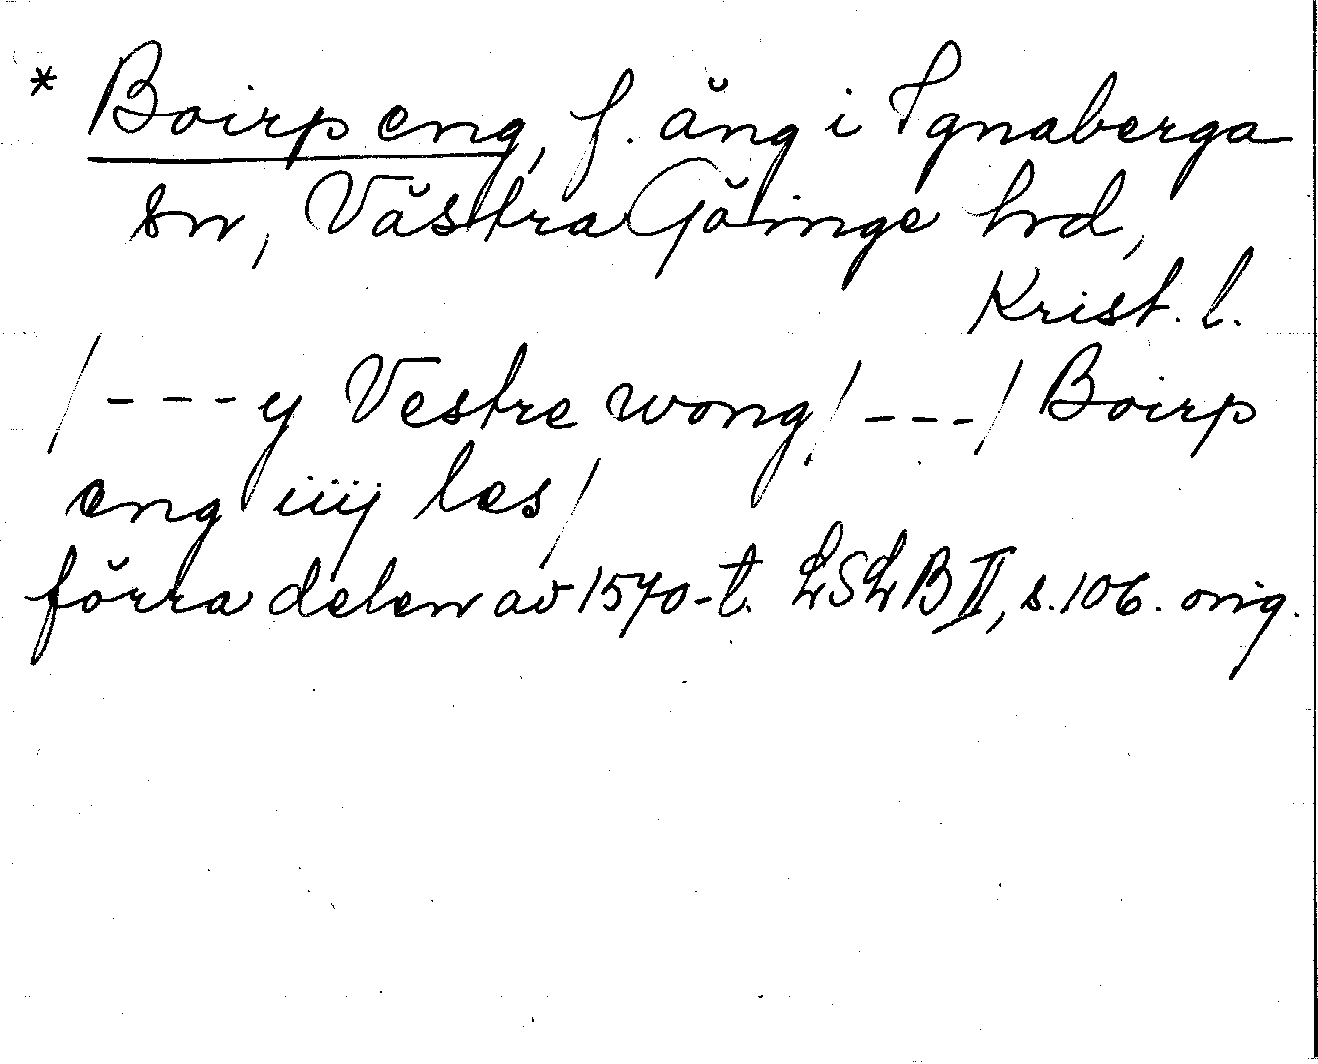 * Boirp eng, f. äng i Ignaberga
sn, Västra Göinge hrd,
Krist. l.
/---y Vestre wong/---/ Boirp
eng iiij les/
förra delen av 1570-t. LSLB II, s. 106. orig.